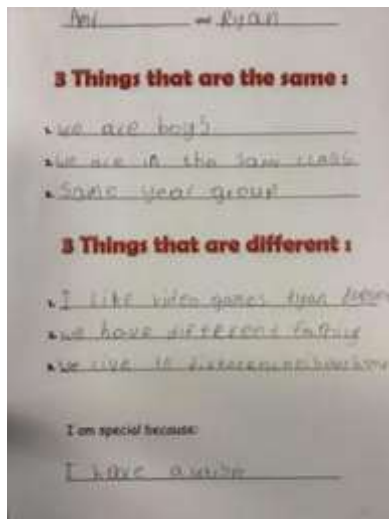 Ryan
3 Things that are the same :
we are boys
we are in the same class
Same year group
3 Things that are different :
I like video games Ryan
we have different
we live in different
I am special because:
I have